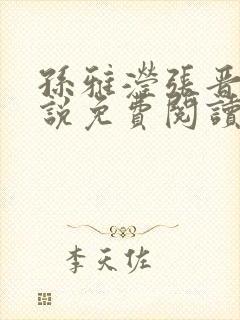 孫雅瀅張晉
說免費閱讀
李天佐